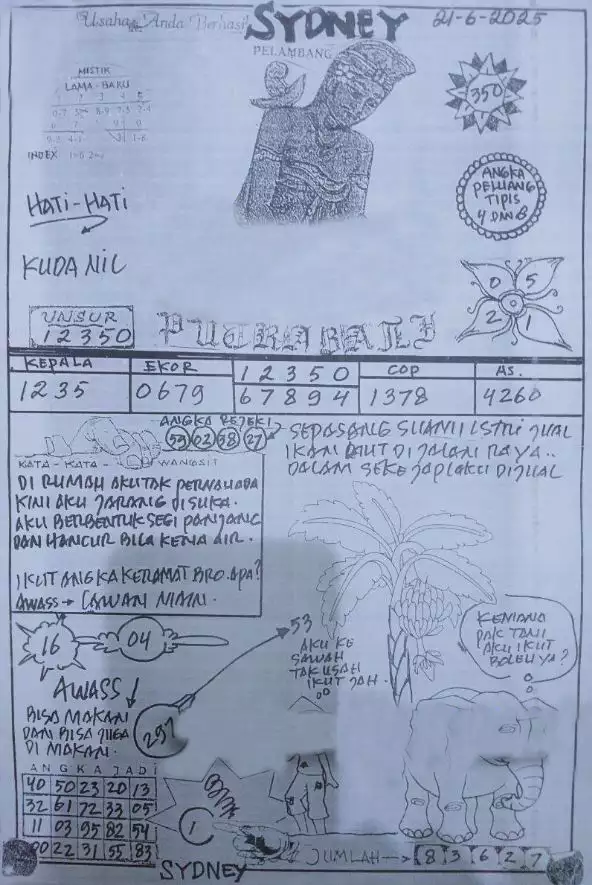 Usaha Anda Berhasil
SYDNEY
21-6-2025
PELAMBANG
MISTIK
LAMA - BARU
INDEX
350
HATI-HATI
ANGKA
PELUANG
TIPIS
4 DAN 8
KUDA NIL
0 5
2 1
UNSUR
12350
PUTRA BALI
KEPALA EKOR 1 2 3 5 0 COP AS.
1235 0679 6 7 8 9 4 1378 4260
ANGKA REJEKI
59 02 38 27
SEPASANG SUAMI ISTRI JUAL
IKAN LAUT DI JALAN RAYA..
DALAM SEKEJAP LAKU DIJUAL
KATA - KATA - WANGSIT
DI RUMAH AKU TAK PERNAH ADA
KINI AKU JARANG DISUKA.
AKU BERBENTUK SEGI PANJANG
DAN HANCUR BILA KENA AIR.
IKUT ANGKA KERAMAT BRO. APA?
AWASS → LAWAN MAIN.
16 04
53
AKU KE
SAWAH
TAK USAH
IKUT JAH.
KEMANA
PAK TANI
AKU IKUT
BOLEH YA?
AWASS!
BISA MAKAN
DAN BISA JUGA
DI MAKAN.
297
ANGKA JADI
40 50 23 20 13
32 61 72 33 05
11 03 95 82 54
00 22 31 55 83
1
SYDNEY
JUMLAH → 8 3 6 2 7